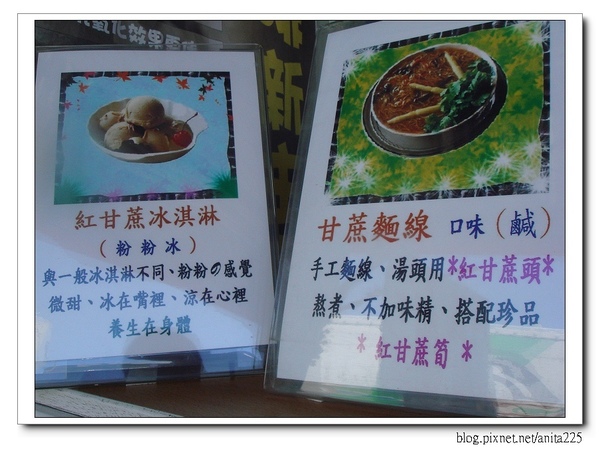 紅甘蔗冰淇淋
（粉粉冰）
與一般冰淇淋不同、粉粉の感覺
微甜、冰在嘴裡、涼在心裡
養生在身體
甘蔗麵線 口味（鹹）
手工麵線、湯頭用*紅甘蔗頭*
熬煮、不加味精、搭配珍品
* 紅甘蔗筍 *
blog.pixnet.net/anita225